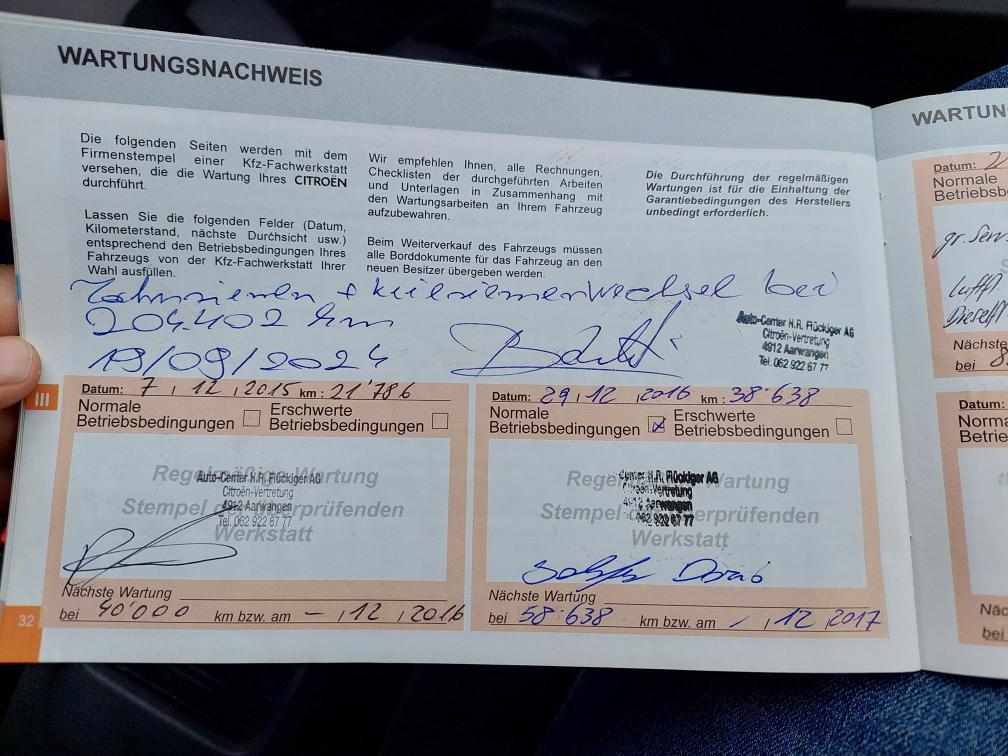 WARTUNGSNACHWEIS
Die folgenden Seiten werden mit dem
Firmenstempel einer Kfz-Fachwerkstatt
versehen, die die Wartung Ihres CITROËN
durchführt.
Lassen Sie die folgenden Felder (Datum,
Kilometerstand, nächste Durchsicht usw.)
entsprechend den Betriebsbedingungen Ihres
Fahrzeugs von der Kfz-Fachwerkstatt Ihrer
Wahl ausfüllen.
Wir empfehlen Ihnen, alle Rechnungen,
Checklisten der durchgeführten Arbeiten
und Unterlagen in Zusammenhang mit
den Wartungsarbeiten an Ihrem Fahrzeug
aufzubewahren.
Beim Weiterverkauf des Fahrzeugs müssen
alle Borddokumente für das Fahrzeug an den
neuen Besitzer übergeben werden.
Die Durchführung der regelmäßigen
Wartungen ist für die Einhaltung der
Garantiebedingungen des Herstellers
unbedingt erforderlich.
Zahnriemen + Keilriemenwechsel bei
204402 km
19/09/2024
Auto-Center H.R. Flückiger AG
Citroën-Vertretung
4912 Aarwangen
Tel. 062 922 67 77
III
Datum: 7 / 12 / 2015 km: 21'786
Normale
Betriebsbedingungen
Erschwerte
Betriebsbedingungen
Regelmäßige Wartung
Stempel der überprüfenden
Werkstatt
Auto-Center H.R. Flückiger AG
Citroën-Vertretung
4912 Aarwangen
Tel. 062 922 67 77
Nächste Wartung
bei 40'000 km bzw. am - / 12 / 2016
Datum: 29 / 12 / 2016 km: 38'638
Normale
Betriebsbedingungen
Erschwerte
Betriebsbedingungen
Regelmäßige Wartung
Stempel der überprüfenden
Werkstatt
Center H.R. Flückiger AG
Citroën-Vertretung
4912 Aarwangen
062 922 67 77
Nächste Wartung
bei 58'638 km bzw. am - / 12 / 2017
32
WARTUN
Datum: 2
Normale
Betriebsb
gr. Serv
Luftfi
Dieself
Nächste
bei 8
Datum:
Norma
Betrie
Näc
bei